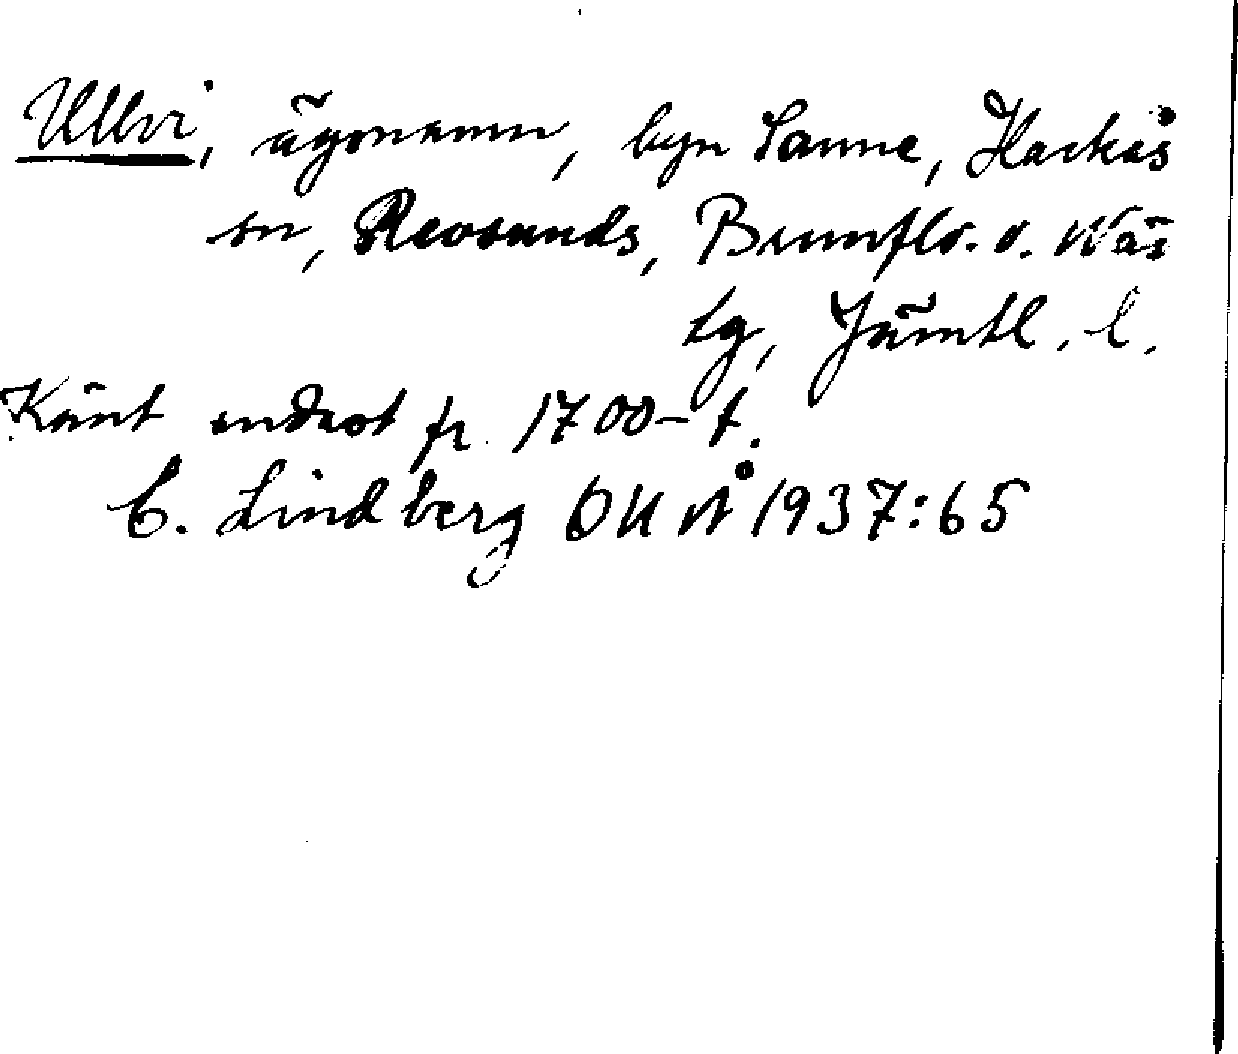 Ullvi, ägonamn, byn Sanne, Hackås
sn, Revsunds, Brunflo. o. Näs
tg, Jämtl. l.
Känt endast fr. 1700-t.
C. Lindberg OUÅ 1937:65